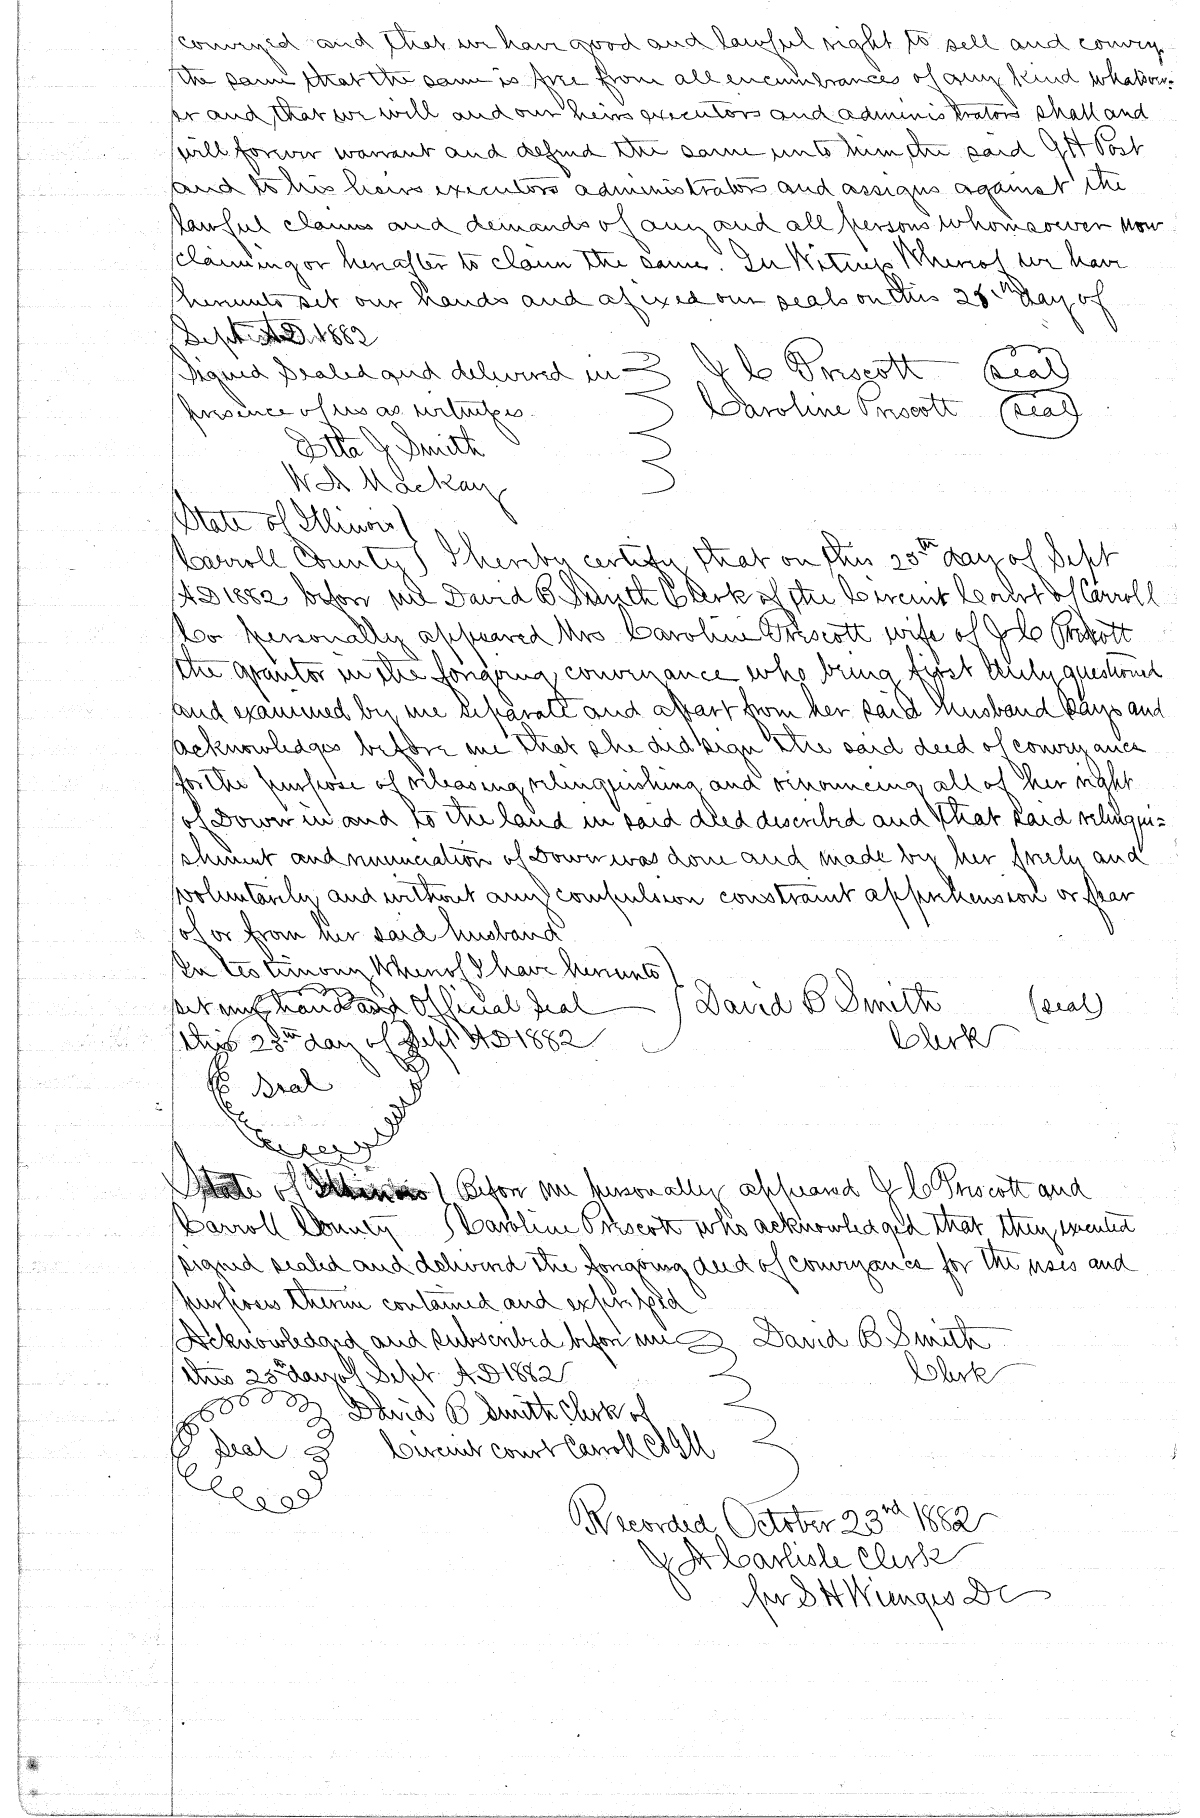 conveyed and that we have good and lawful right to sell and convey
the same that the same is free from all encumbrances of any kind whatsoev-
er and that we will and our heirs executors and administrators shall and
will forever warrant and defend the same unto him the said G H Post
and to his heirs executors administrators and assigns against the
lawful claims and demands of any and all persons whomsoever now
claiming or hereafter to claim the same. In Witness Whereof we have
hereunto set our hands and afixed our seals on this 25th day of
Sept AD 1882
Signed Sealed and delivered in J C Priscott (seal)
presence of us as witnesses. Caroline Priscott (seal)
Etta J Smith
W A Mackay
State of Illinois)
Carroll County) I hereby certify that on this 25th day of Sept
AD 1882 before me David B Smith Clerk of the Circuit Court of Carroll
Co personally appeared Mrs Caroline Priscott wife of J C Priscott
the grantor in the forgoing conveyance who being first duly questioned
and examined by me separate and apart from her said husband says and
acknowledges before me that she did sign the said deed of conveyance
for the purpose of releasing relinquishing and renouncing all of her right
of Dower in and to the land in said deed described and that said relinqui=
shment and renunciation of Dower was done and made by her freely and
voluntarily and without any compulsion constraint apprehension or fear
of or from her said husband
In testimony Whereof I have hereunto)
set my hand and Official Seal David B Smith (seal)
this 25th day of Sept AD 1882 Clerk
Seal
State of Illinois) Before me personally appeared J C Priscott and
Carroll County (Caroline Priscott who acknowledged that they executed
signed sealed and delivered the forgoing deed of conveyance for the uses and
purposes therein contained and expressed
Acknowledged and subscribed before me David B Smith
this 25th day of Sept AD 1882 Clerk
David B Smith Clerk of
Seal Circuit court Carroll Co Ill
Recorded October 23rd 1882
J A Carlisle Clerk
per S H Wienges DC